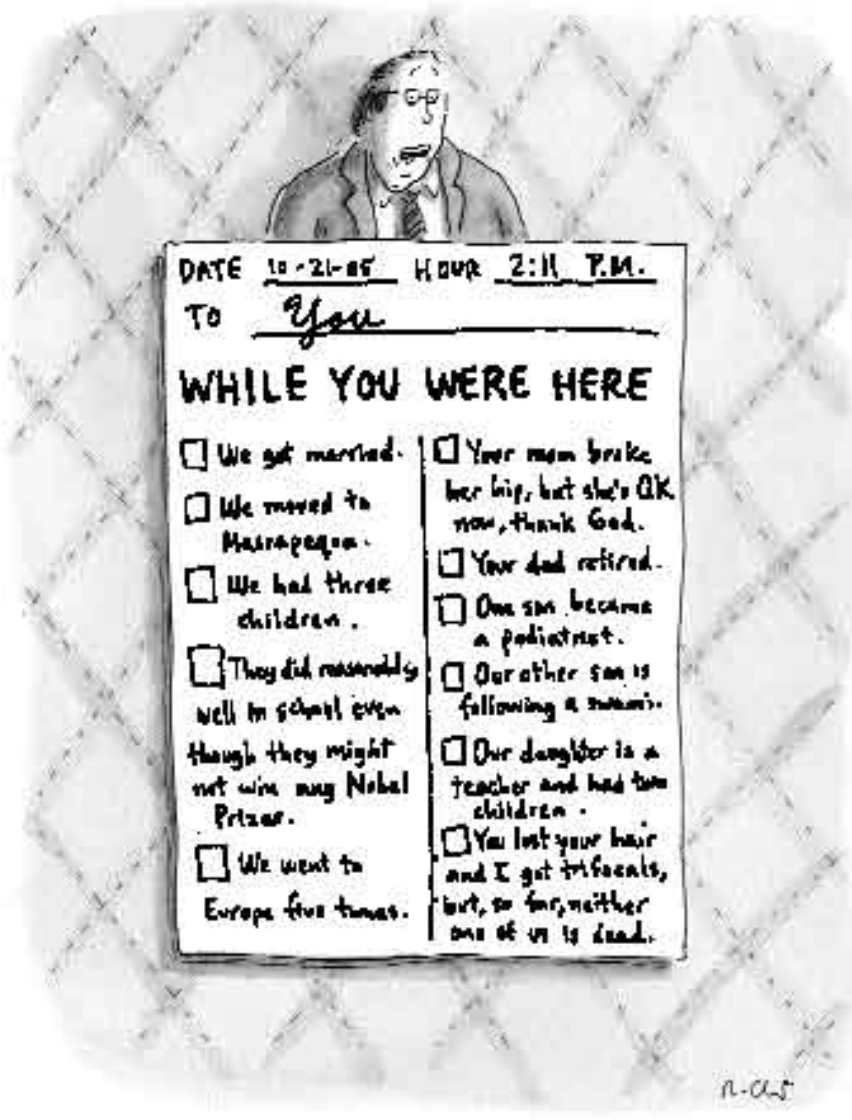 DATE 10-21-05 HOUR 2:11 P.M.
TO You
WHILE YOU WERE HERE
We got married.
We moved to
Massapequa.
We had three
children.
They did reasonably
well in school even
though they might
not win any Nobel
Prizes.
We went to
Europe five times.
Your mom broke
her hip, but she's OK
now, thank God.
Your dad retired.
One son became
a podiatrist.
Our other son is
following a swami.
Our daughter is a
teacher and had two
children.
You lost your hair
and I got trifocals,
but, so far, neither
one of us is dead.